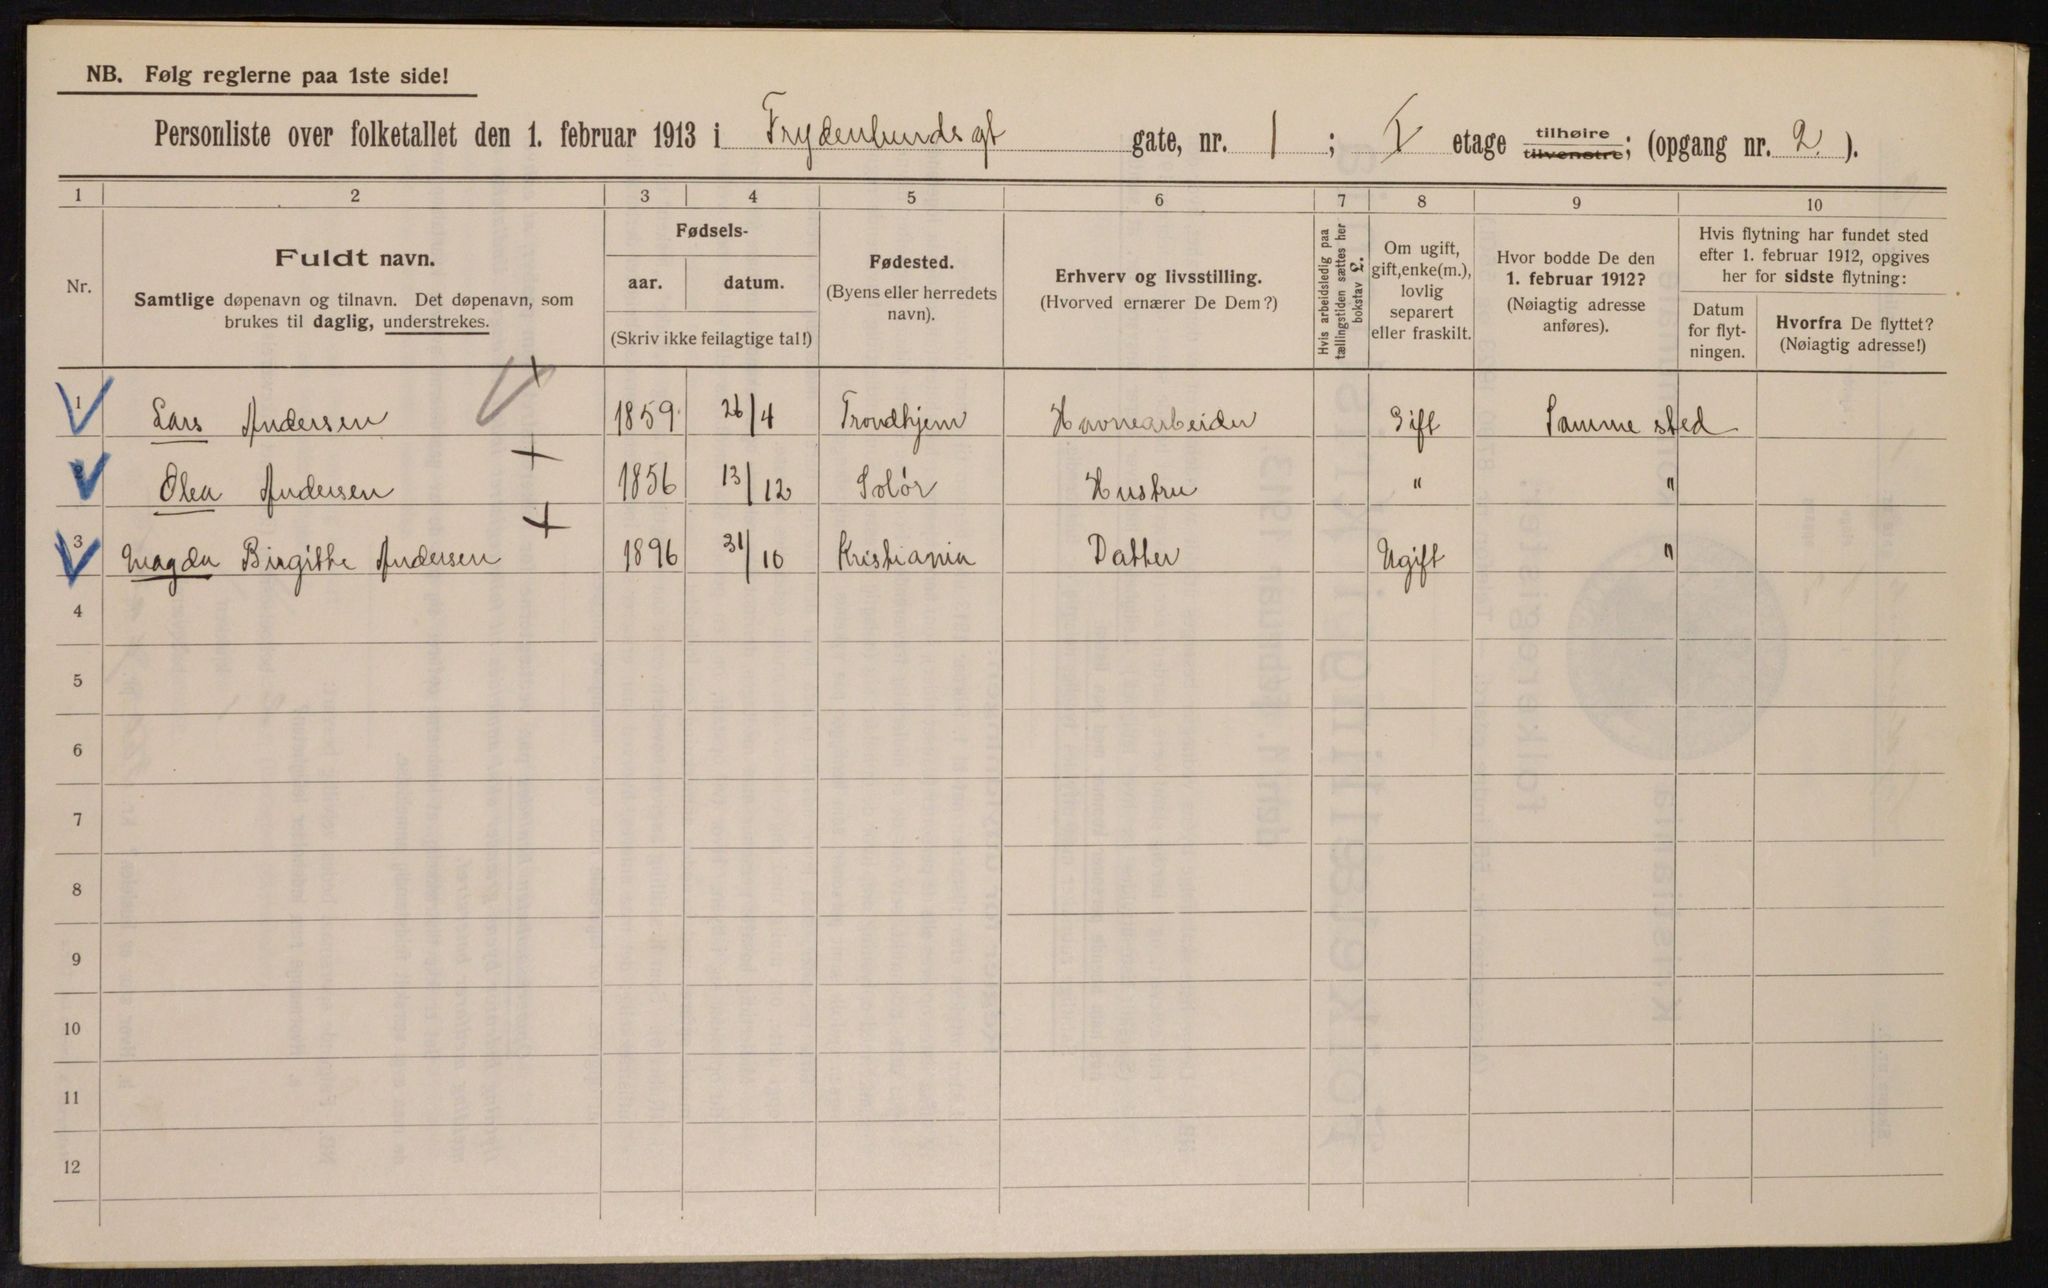 NB. Følg reglerne paa 1ste side!
Personliste over folketallet den 1. februar 1913 i Frydenlundsgt gate, nr. 1 ; I etage tilhøire tilvenstre; (opgang nr. 2. ).
1 2 3 4 5 6 7 8 9 10
Nr.
Fuldt navn.
Samtlige døpenavn og tilnavn. Det døpenavn, som
brukes til daglig, understrekes.
Fødsels-
aar. datum.
(Skriv ikke feilagtige tal!)
Fødested.
(Byens eller herredets
navn).
Erhverv og livsstilling.
(Hvorved ernærer De Dem?)
Hvis arbeidsledig paa
tællingstiden sættes her
bokstav L.
Om ugift,
gift, enke(m.),
lovlig
separert
eller fraskilt.
Hvor bodde De den
1. februar 1912?
(Nøiagtig adresse
anføres).
Hvis flytning har fundet sted
efter 1. februar 1912, opgives
her for sidste flytning:
Datum
for flyt-
ningen.
Hvorfra De flyttet?
(Nøiagtig adresse!)
1 Lars Andersen 1859 26/4 Trondhjem Havnearbeider Gift Samme sted
2 Olea Andersen 1856 13/12 Solør Hustru " "
3 Magda Birgithe Andersen 1896 31/10 Kristiania Datter Ugift "
4
5
6
7
8
9
10
11
12